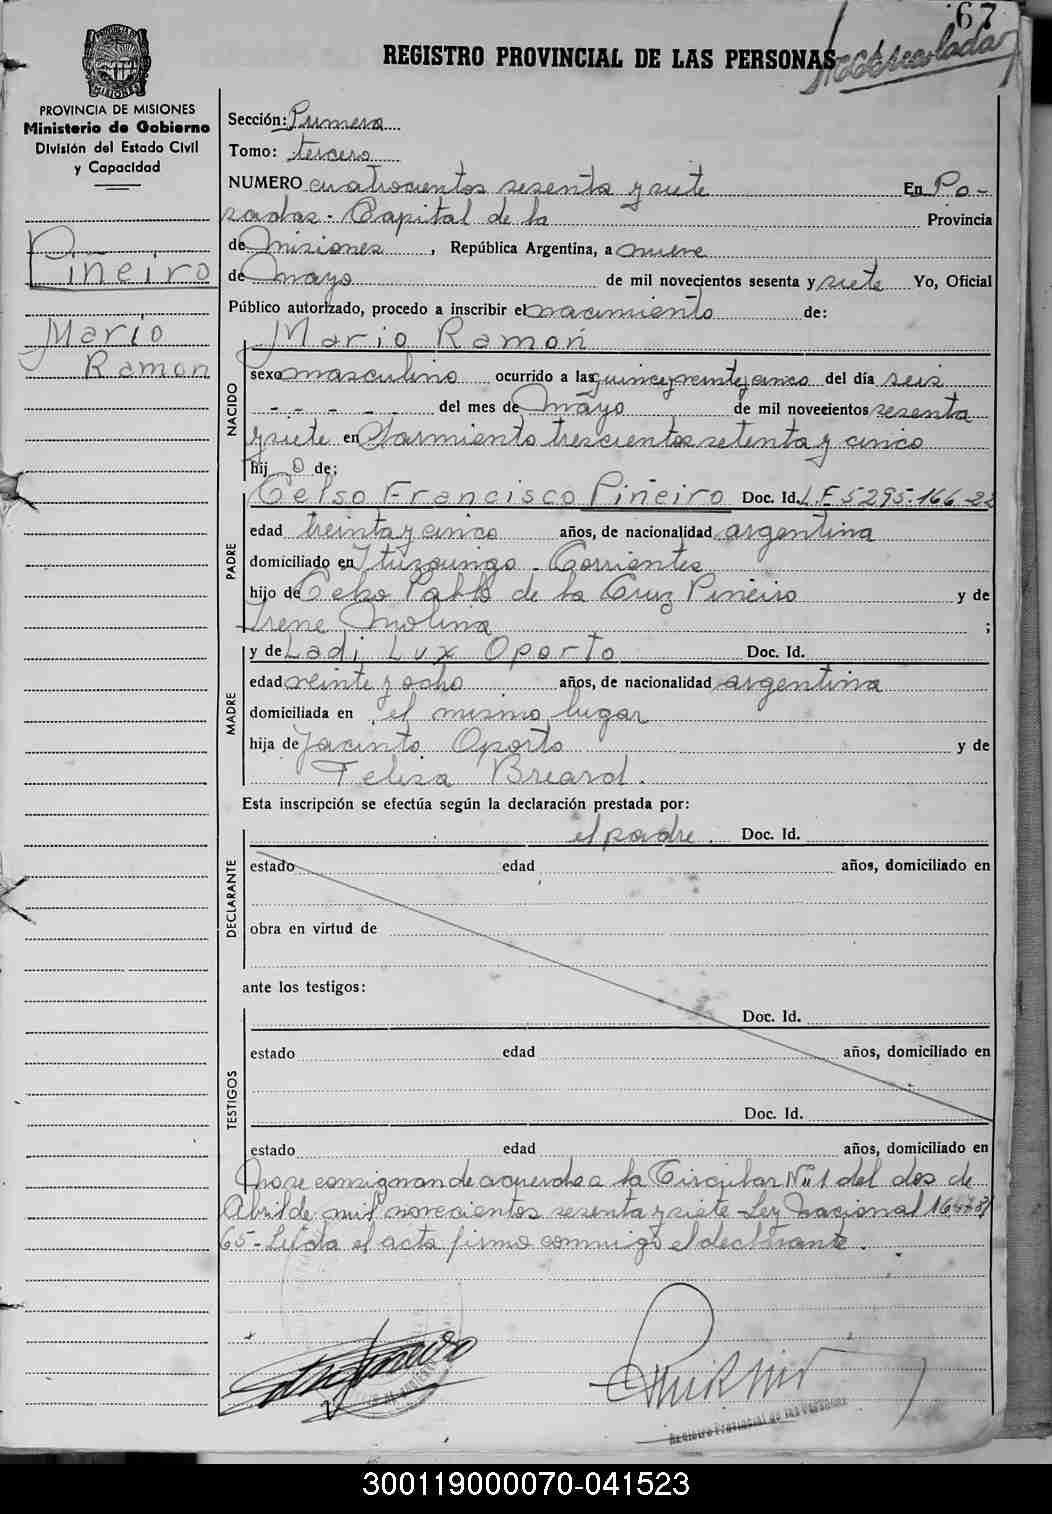 67
REGISTRO PROVINCIAL DE LAS PERSONAS
PROVINCIA DE MISIONES
PROVINCIA DE MISIONES
Ministerio de Gobierno
División del Estado Civil
y Capacidad
Piñeiro
Mario
Ramon
Sección: Primera
Tomo: tercero
NUMERO cuatrocientos sesenta y siete En Po-
sadas - Capital de la Provincia
de Misiones, República Argentina, a nueve
de mayo de mil novecientos sesenta y siete Yo, Oficial
Público autorizado, procedo a inscribir el nacimiento de:
Mario Ramón
NACIDO
sexo masculino ocurrido a las quince y veinte y cinco del día seis
- - - - - del mes de Mayo de mil novecientos sesenta
y siete en Sarmiento trescientos setenta y cinco
hijo de;
PADRE
Celso Francisco Piñeiro Doc. Id. L.E 5295.166-22
edad treinta y cinco años, de nacionalidad argentina
domiciliado en Ituzaingo - Corrientes
hijo de Celso Pablo de la Cruz Piñeiro y de
Irene Molina ;
MADRE
y de Ladi Lux Oporto Doc. Id.
edad veinte y ocho años, de nacionalidad argentina
domiciliada en el mismo lugar
hija de Jacinto Oporto y de
Felisa Breard.
Esta inscripción se efectúa según la declaración prestada por:
DECLARANTE
el padre. Doc. Id.
estado edad años, domiciliado en
obra en virtud de
ante los testigos:
TESTIGOS
Doc. Id.
estado edad años, domiciliado en
Doc. Id.
estado edad años, domiciliado en
No se consignan de acuerdo a la Circular Nº 1 del dos de
Abril de mil novecientos sesenta y siete - Ley Nacional 16.478/
65 - Leída el acta firmo conmigo el declarante.
Registro Provincial de las Personas
300119000070-041523